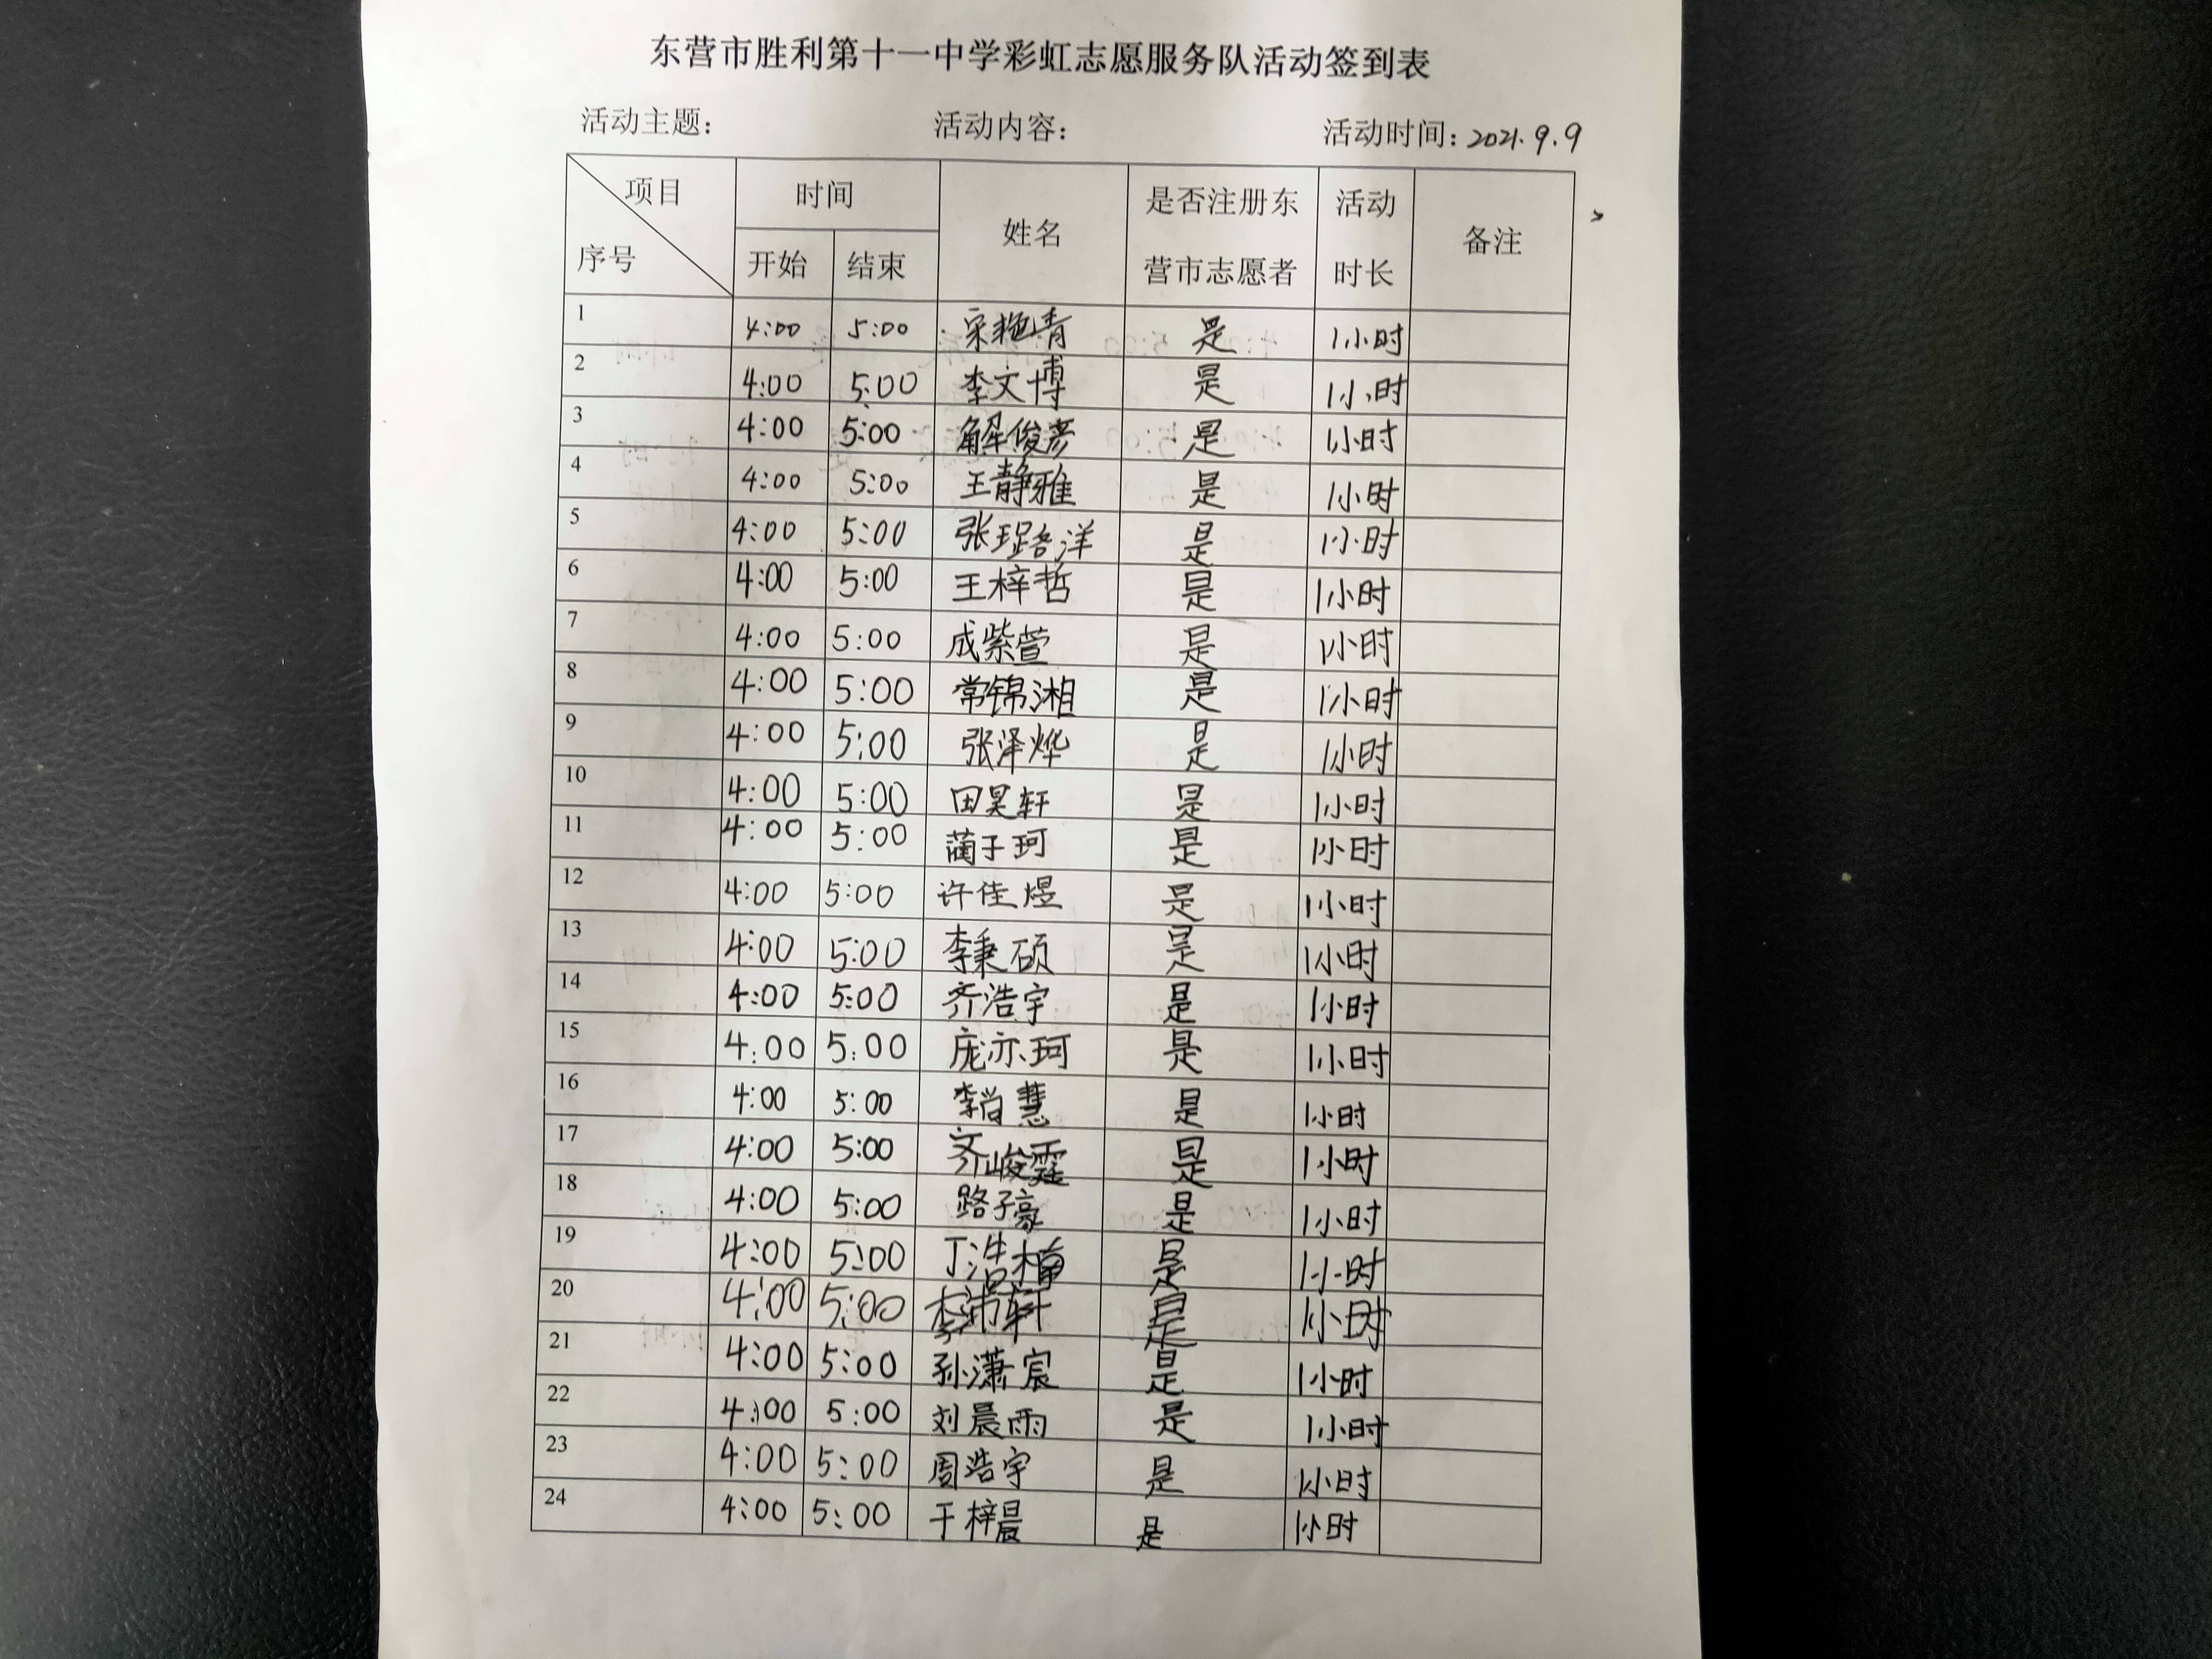 东营市胜利第十一中学彩虹志愿服务队活动签到表
活动主题: 活动内容: 活动时间: 2021.9.9
项目 时间 姓名 是否注册东 活动 备注
序号 开始 结束 营市志愿者 时长
1 4:00 5:00 宋艳青 是 1小时
2 4:00 5:00 李文博 是 1小时
3 4:00 5:00 解俊彦 是 1小时
4 4:00 5:00 王静雅 是 1小时
5 4:00 5:00 张珺路洋 是 1小时
6 4:00 5:00 王梓哲 是 1小时
7 4:00 5:00 成紫萱 是 1小时
8 4:00 5:00 常锦湘 是 1小时
9 4:00 5:00 张泽烨 是 1小时
10 4:00 5:00 田昊轩 是 1小时
11 4:00 5:00 蔺子珂 是 1小时
12 4:00 5:00 许佳煜 是 1小时
13 4:00 5:00 李秉硕 是 1小时
14 4:00 5:00 齐浩宇 是 1小时
15 4:00 5:00 庞亦珂 是 1小时
16 4:00 5:00 李尚慧 是 1小时
17 4:00 5:00 齐峻霆 是 1小时
18 4:00 5:00 路子豪 是 1小时
19 4:00 5:00 丁浩楠 是 1小时
20 4:00 5:00 李沛轩 是 1小时
21 4:00 5:00 孙潇宸 是 1小时
22 4:00 5:00 刘晨雨 是 1小时
23 4:00 5:00 周浩宇 是 1小时
24 4:00 5:00 于梓晨 是 1小时